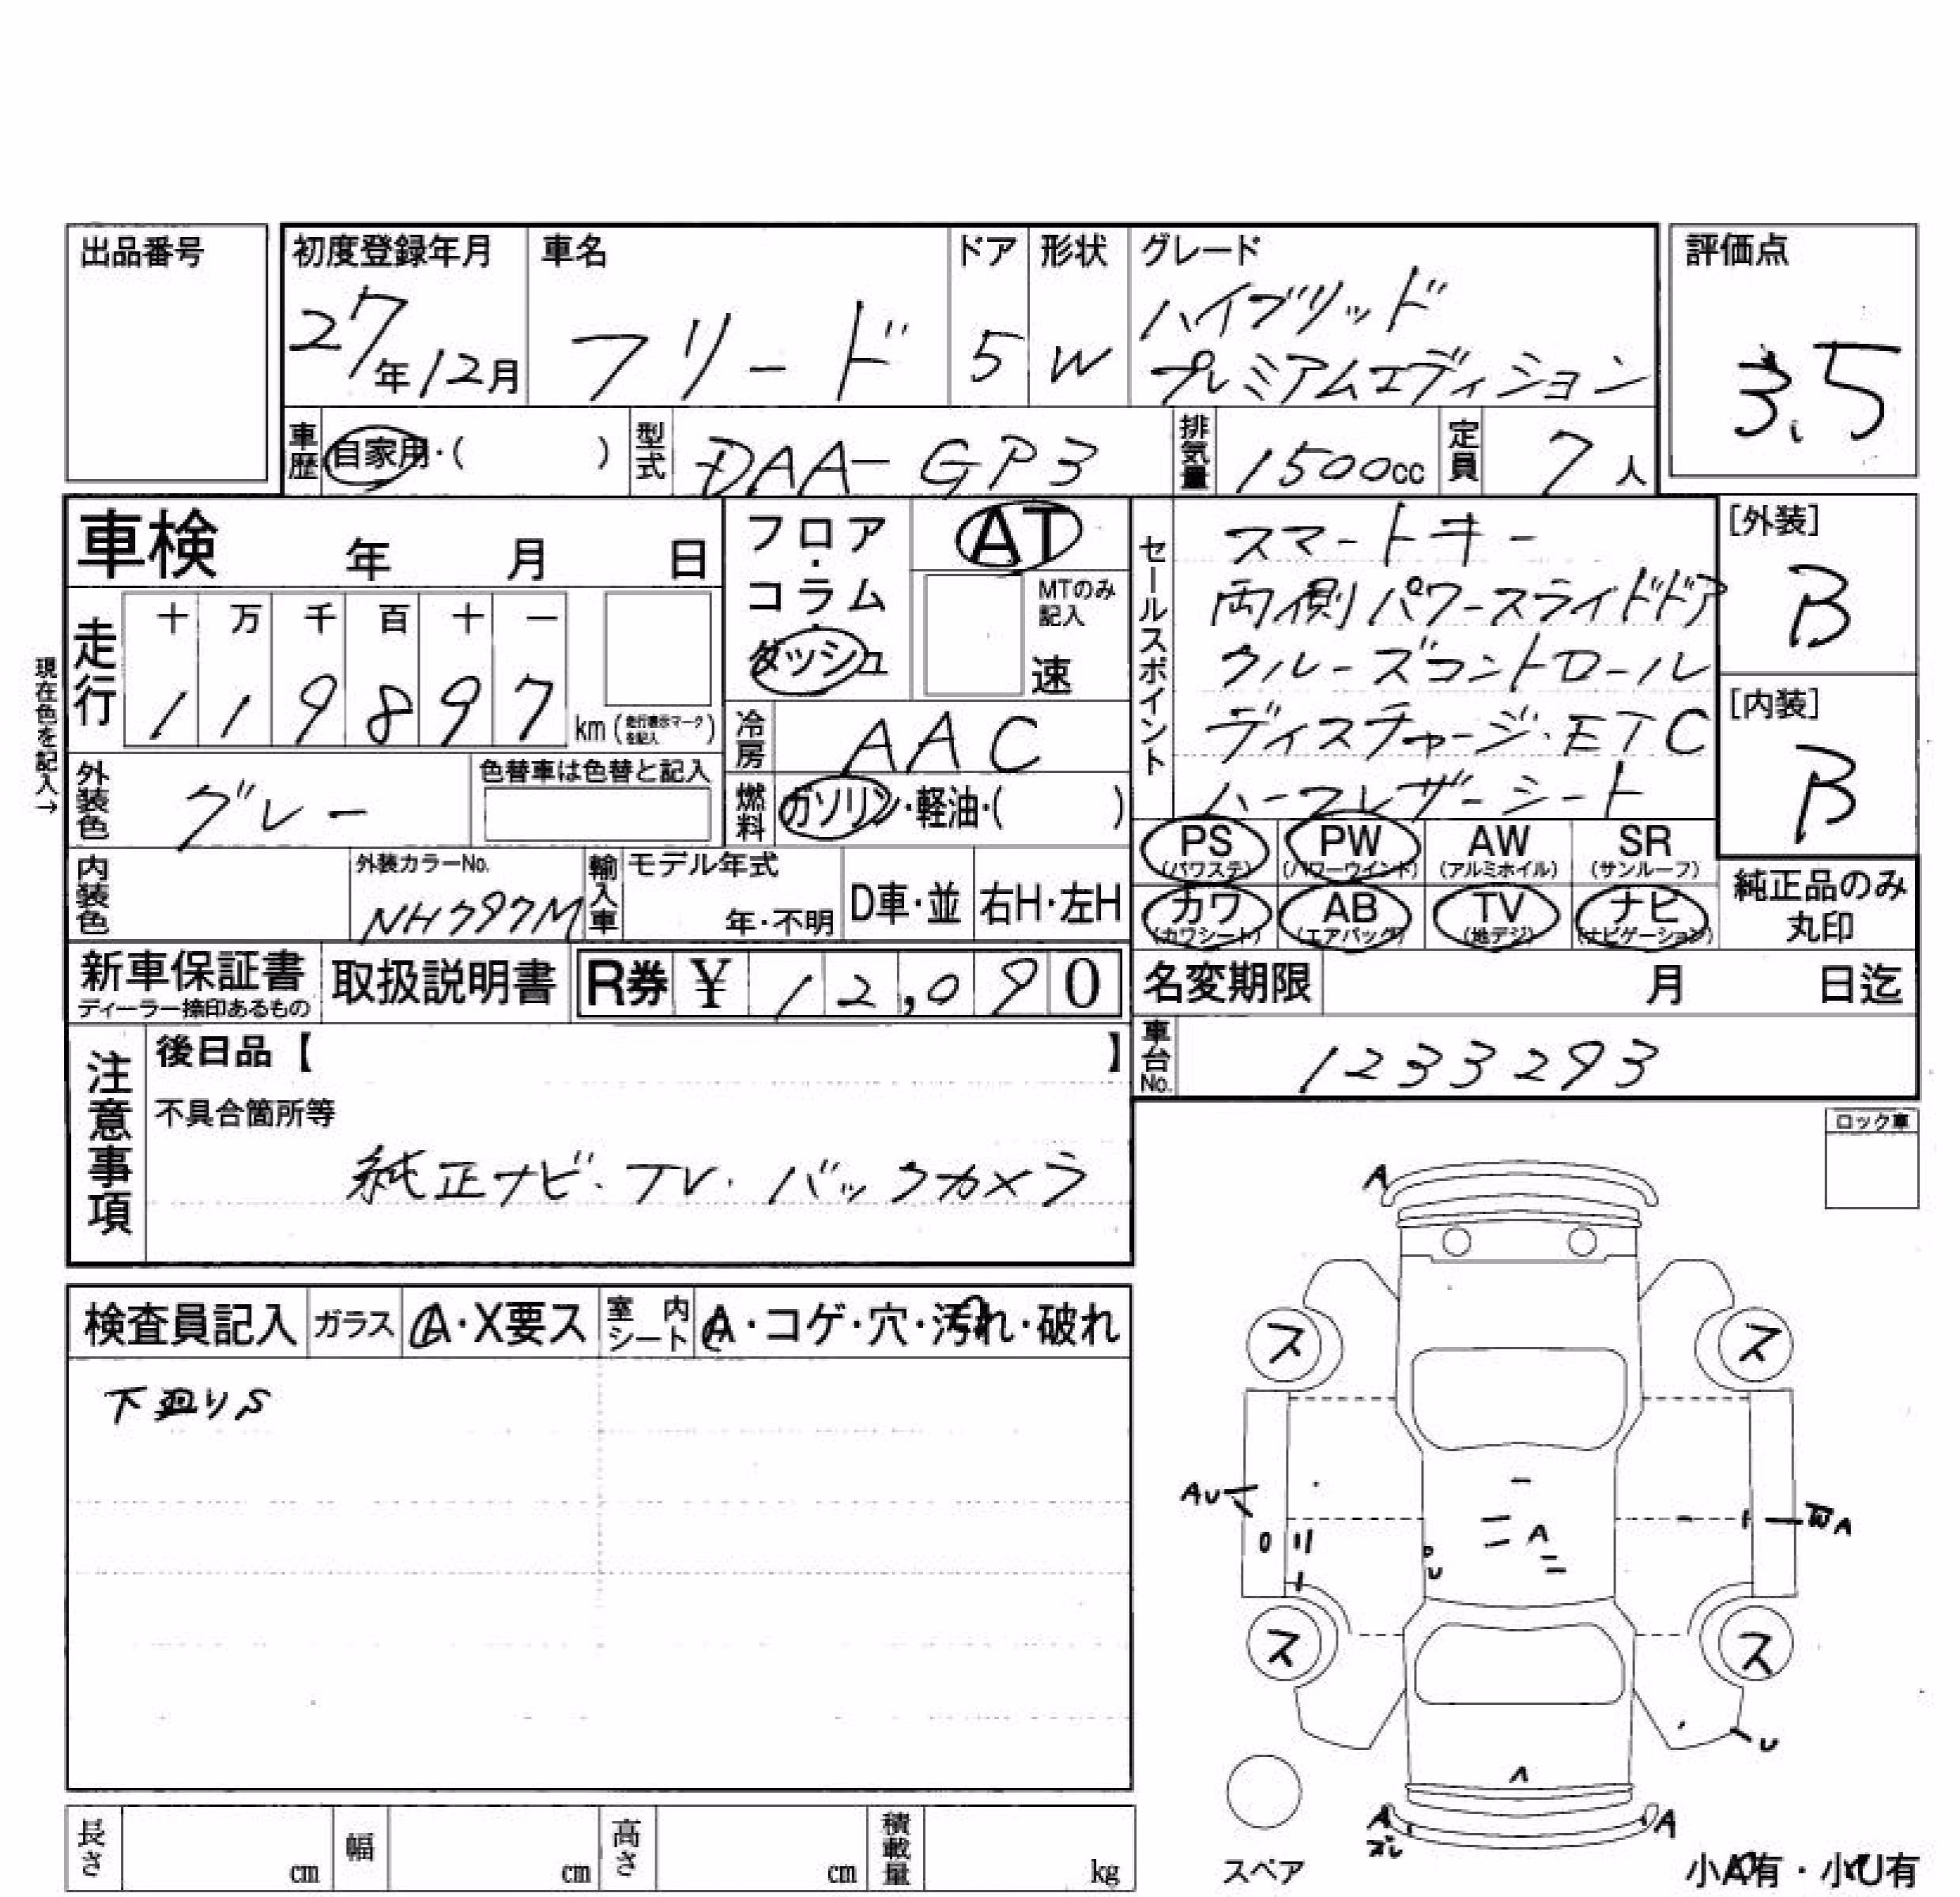 出品番号
初度登録年月 車名 ドア 形状 グレード 評価点
27年12月 フリード 5 W ハイブリッド
プレミアムエディション
3.5
車歴 自家用・( ) 型式 DAA-GP3 排気量 1500cc 定員 7人
車検 年 月 日
フロア・コラム・ダッシュ AT
MTのみ記入
速
セールスポイント
スマートキー
両側パワースライドドア
クルーズコントロール
ディスチャージ・ETC
ハーフレザーシート
[外装]
B
[内装]
B
現在色を記入→
走行 十 万 千 百 十 一
1 1 9 8 9 7 km (走行表示マークを記入)
冷房 AAC
外装色 グレー 色替車は色替と記入
燃料 ガソリン・軽油・( )
PS (パワステ) PW (パワーウインド) AW (アルミホイル) SR (サンルーフ)
カワ (カワシート) AB (エアバッグ) TV (地デジ) ナビ (ナビゲーション)
純正品のみ
丸印
内装色 外装カラーNo. NH797M 輸入車 モデル年式 年・不明 D車・並 右H・左H
新車保証書 ディーラー捺印あるもの 取扱説明書 R券 ¥ 12,090
名変期限 月 日迄
車台No. 1233293
注意事項
後日品【 】
不具合箇所等
純正ナビ・TV・バックカメラ
ロック車
検査員記入 ガラス A・X要ス 室内シート A・コゲ・穴・汚れ・破れ
下廻りS
A
ス ス
AU
A
U
A
ス ス
U
A
A A
スペア
小A有・小U有
長さ cm 幅 cm 高さ cm 積載量 kg